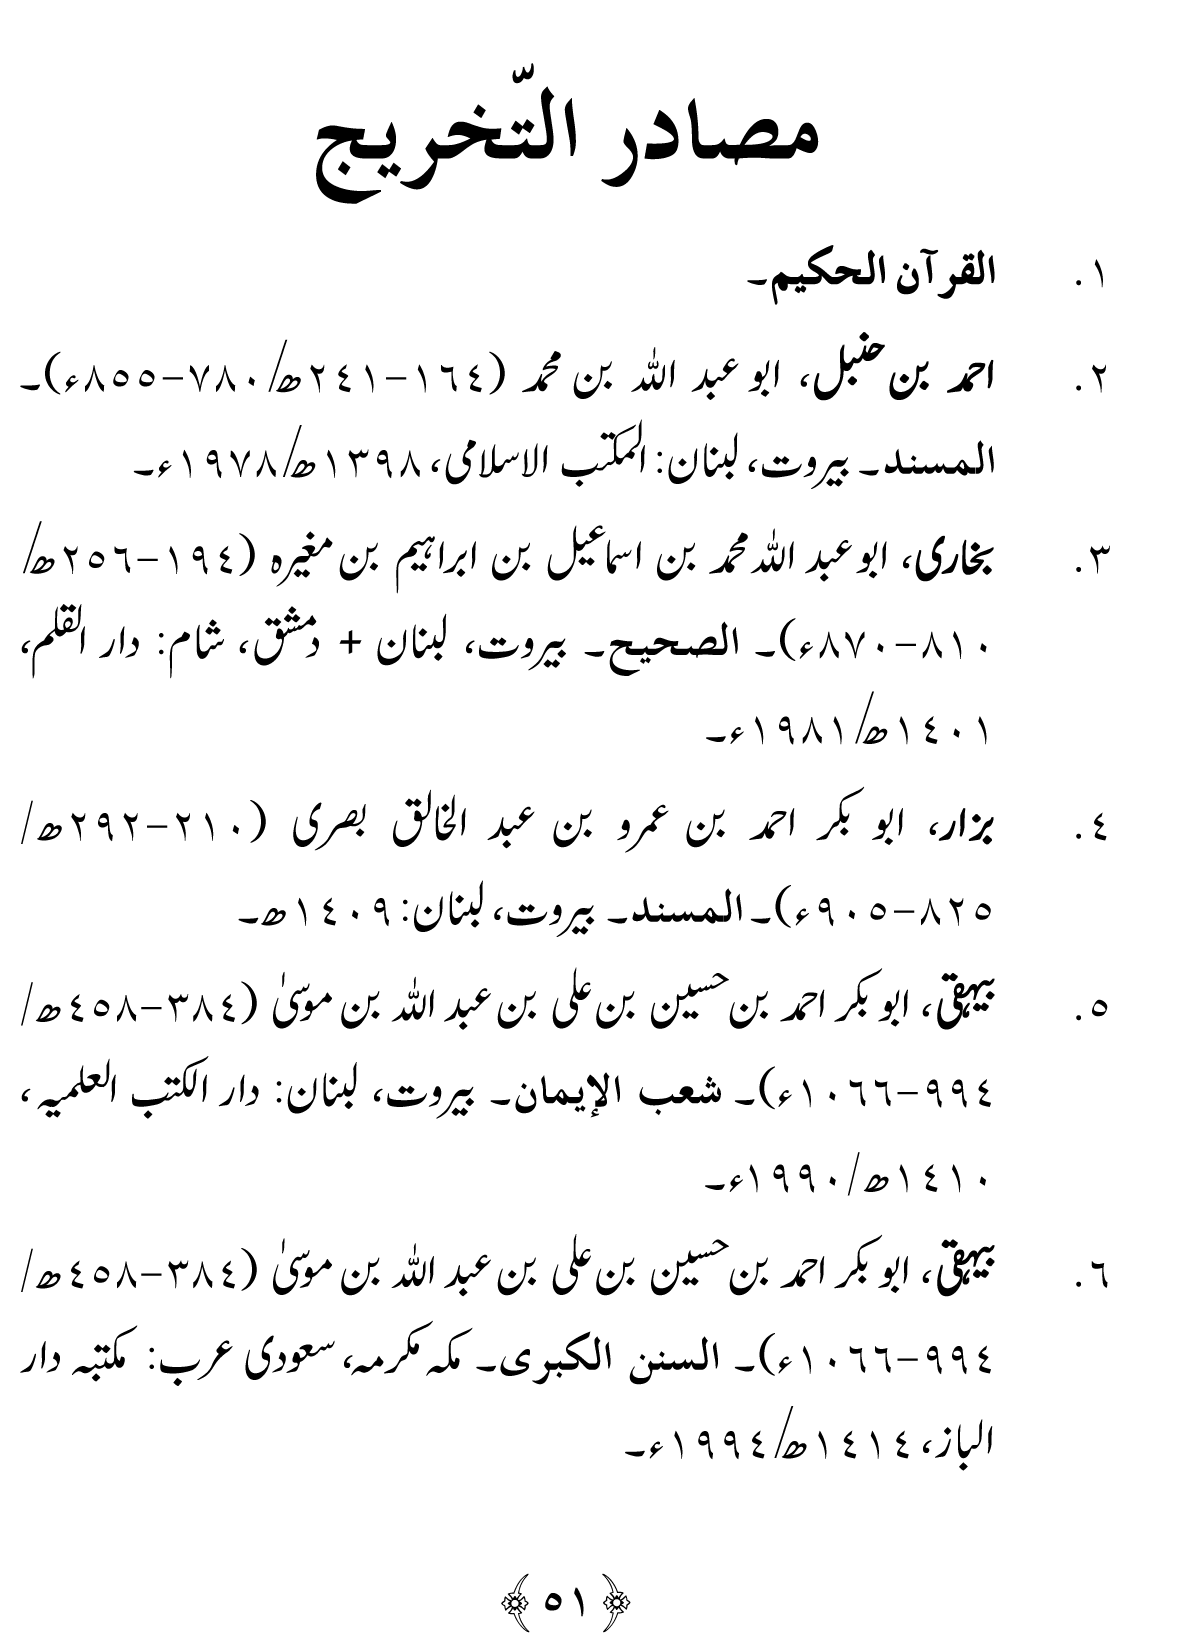 مصادر التّخريج
١. القرآن الحكيم۔
٢. احمد بن حنبل، ابو عبد اللہ بن محمد (١٦٤-٢٤١ھ/٧٨٠-٨٥٥ء)۔
المسند۔ بیروت، لبنان: المکتب الاسلامی، ١٣٩٨ھ/١٩٧٨ء۔
٣. بخاری، ابو عبد اللہ محمد بن اسماعیل بن ابراہیم بن مغیرہ (١٩٤-٢٥٦ھ/
٨١٠-٨٧٠ء)۔ الصحيح۔ بیروت، لبنان + دمشق، شام: دار القلم،
١٤٠١ھ/١٩٨١ء۔
٤. بزار، ابو بکر احمد بن عمرو بن عبد الخالق بصری (٢١٠-٢٩٢ھ/
٨٢٥-٩٠٥ء)۔ المسند۔ بیروت، لبنان: ١٤٠٩ھ۔
٥. بیہقی، ابو بکر احمد بن حسین بن علی بن عبد اللہ بن موسیٰ (٣٨٤-٤٥٨ھ/
٩٩٤-١٠٦٦ء)۔ شعب الإيمان۔ بیروت، لبنان: دار الکتب العلمیہ،
١٤١٠ھ/١٩٩٠ء۔
٦. بیہقی، ابو بکر احمد بن حسین بن علی بن عبد اللہ بن موسیٰ (٣٨٤-٤٥٨ھ/
٩٩٤-١٠٦٦ء)۔ السنن الكبرى۔ مکہ مکرمہ، سعودی عرب: مکتبہ دار
الباز، ١٤١٤ھ/١٩٩٤ء۔
﴿٥١﴾